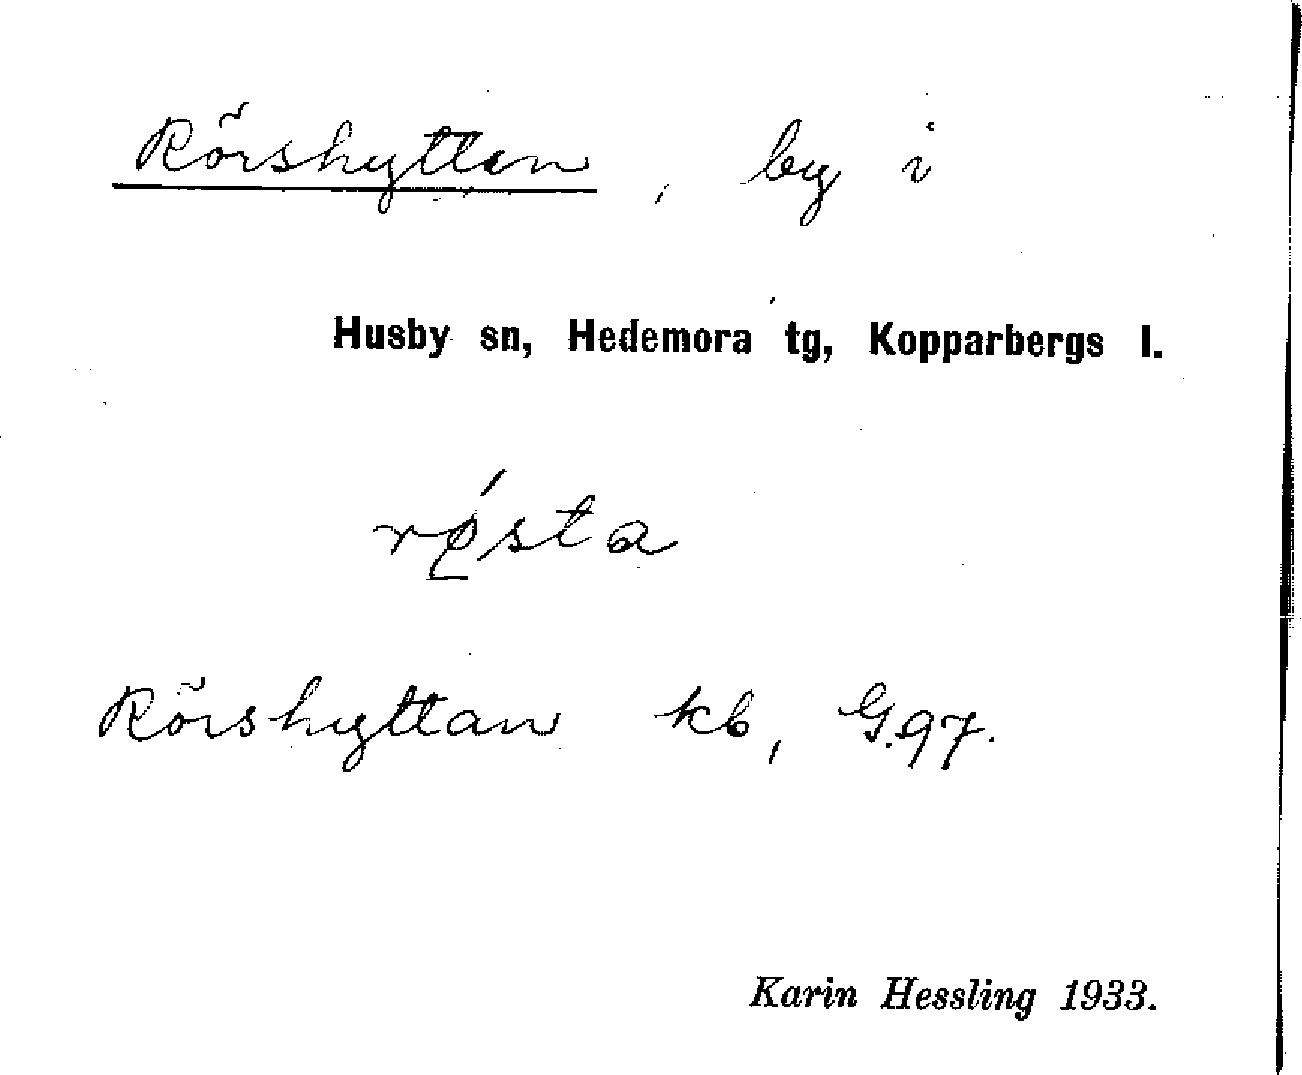 Rörshyttan, by i
Husby sn, Hedemora tg, Kopparbergs l.
rǿ̨sta
Rörshyttan kb, G.97.
Karin Hessling 1933.